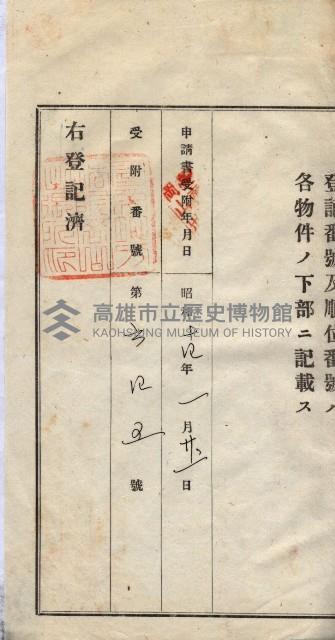 登記番號及順位番號ハ
各物件ノ下部ニ記載ス
申請書受附年月日 昭和 年一月廿二日
受附番號 第 號
右登記濟
高雄市立歷史博物館
KAOHSIUNG MUSEUM OF HISTORY